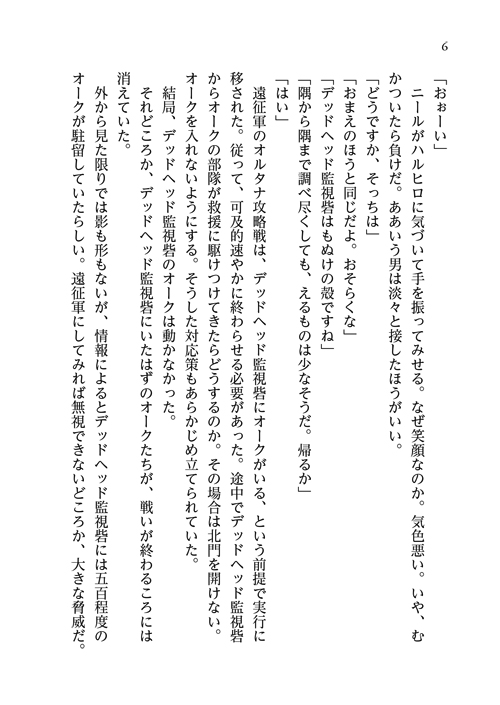 6
「おぉーい」
　ニールがハルヒロに気づいて手を振ってみせる。なぜ笑顔なのか。気色悪い。いや、む
かついたら負けだ。ああいう男は淡々と接したほうがいい。
「どうですか、そっちは」
「おまえのほうと同じだよ。おそらくな」
「デッドヘッド監視砦はもぬけの殻ですね」
「隅から隅まで調べ尽くしても、えるものは少なそうだ。帰るか」
「はい」
　遠征軍のオルタナ攻略戦は、デッドヘッド監視砦にオークがいる、という前提で実行に
移された。従って、可及的速やかに終わらせる必要があった。途中でデッドヘッド監視砦
からオークの部隊が救援に駆けつけてきたらどうするのか。その場合は北門を開けない。
オークを入れないようにする。そうした対応策もあらかじめ立てられていた。
　結局、デッドヘッド監視砦のオークは動かなかった。
　それどころか、デッドヘッド監視砦にいたはずのオークたちが、戦いが終わるころには
消えていた。
　外から見た限りでは影も形もないが、情報によるとデッドヘッド監視砦には五百程度の
オークが駐留していたらしい。遠征軍にしてみれば無視できないどころか、大きな脅威だ。